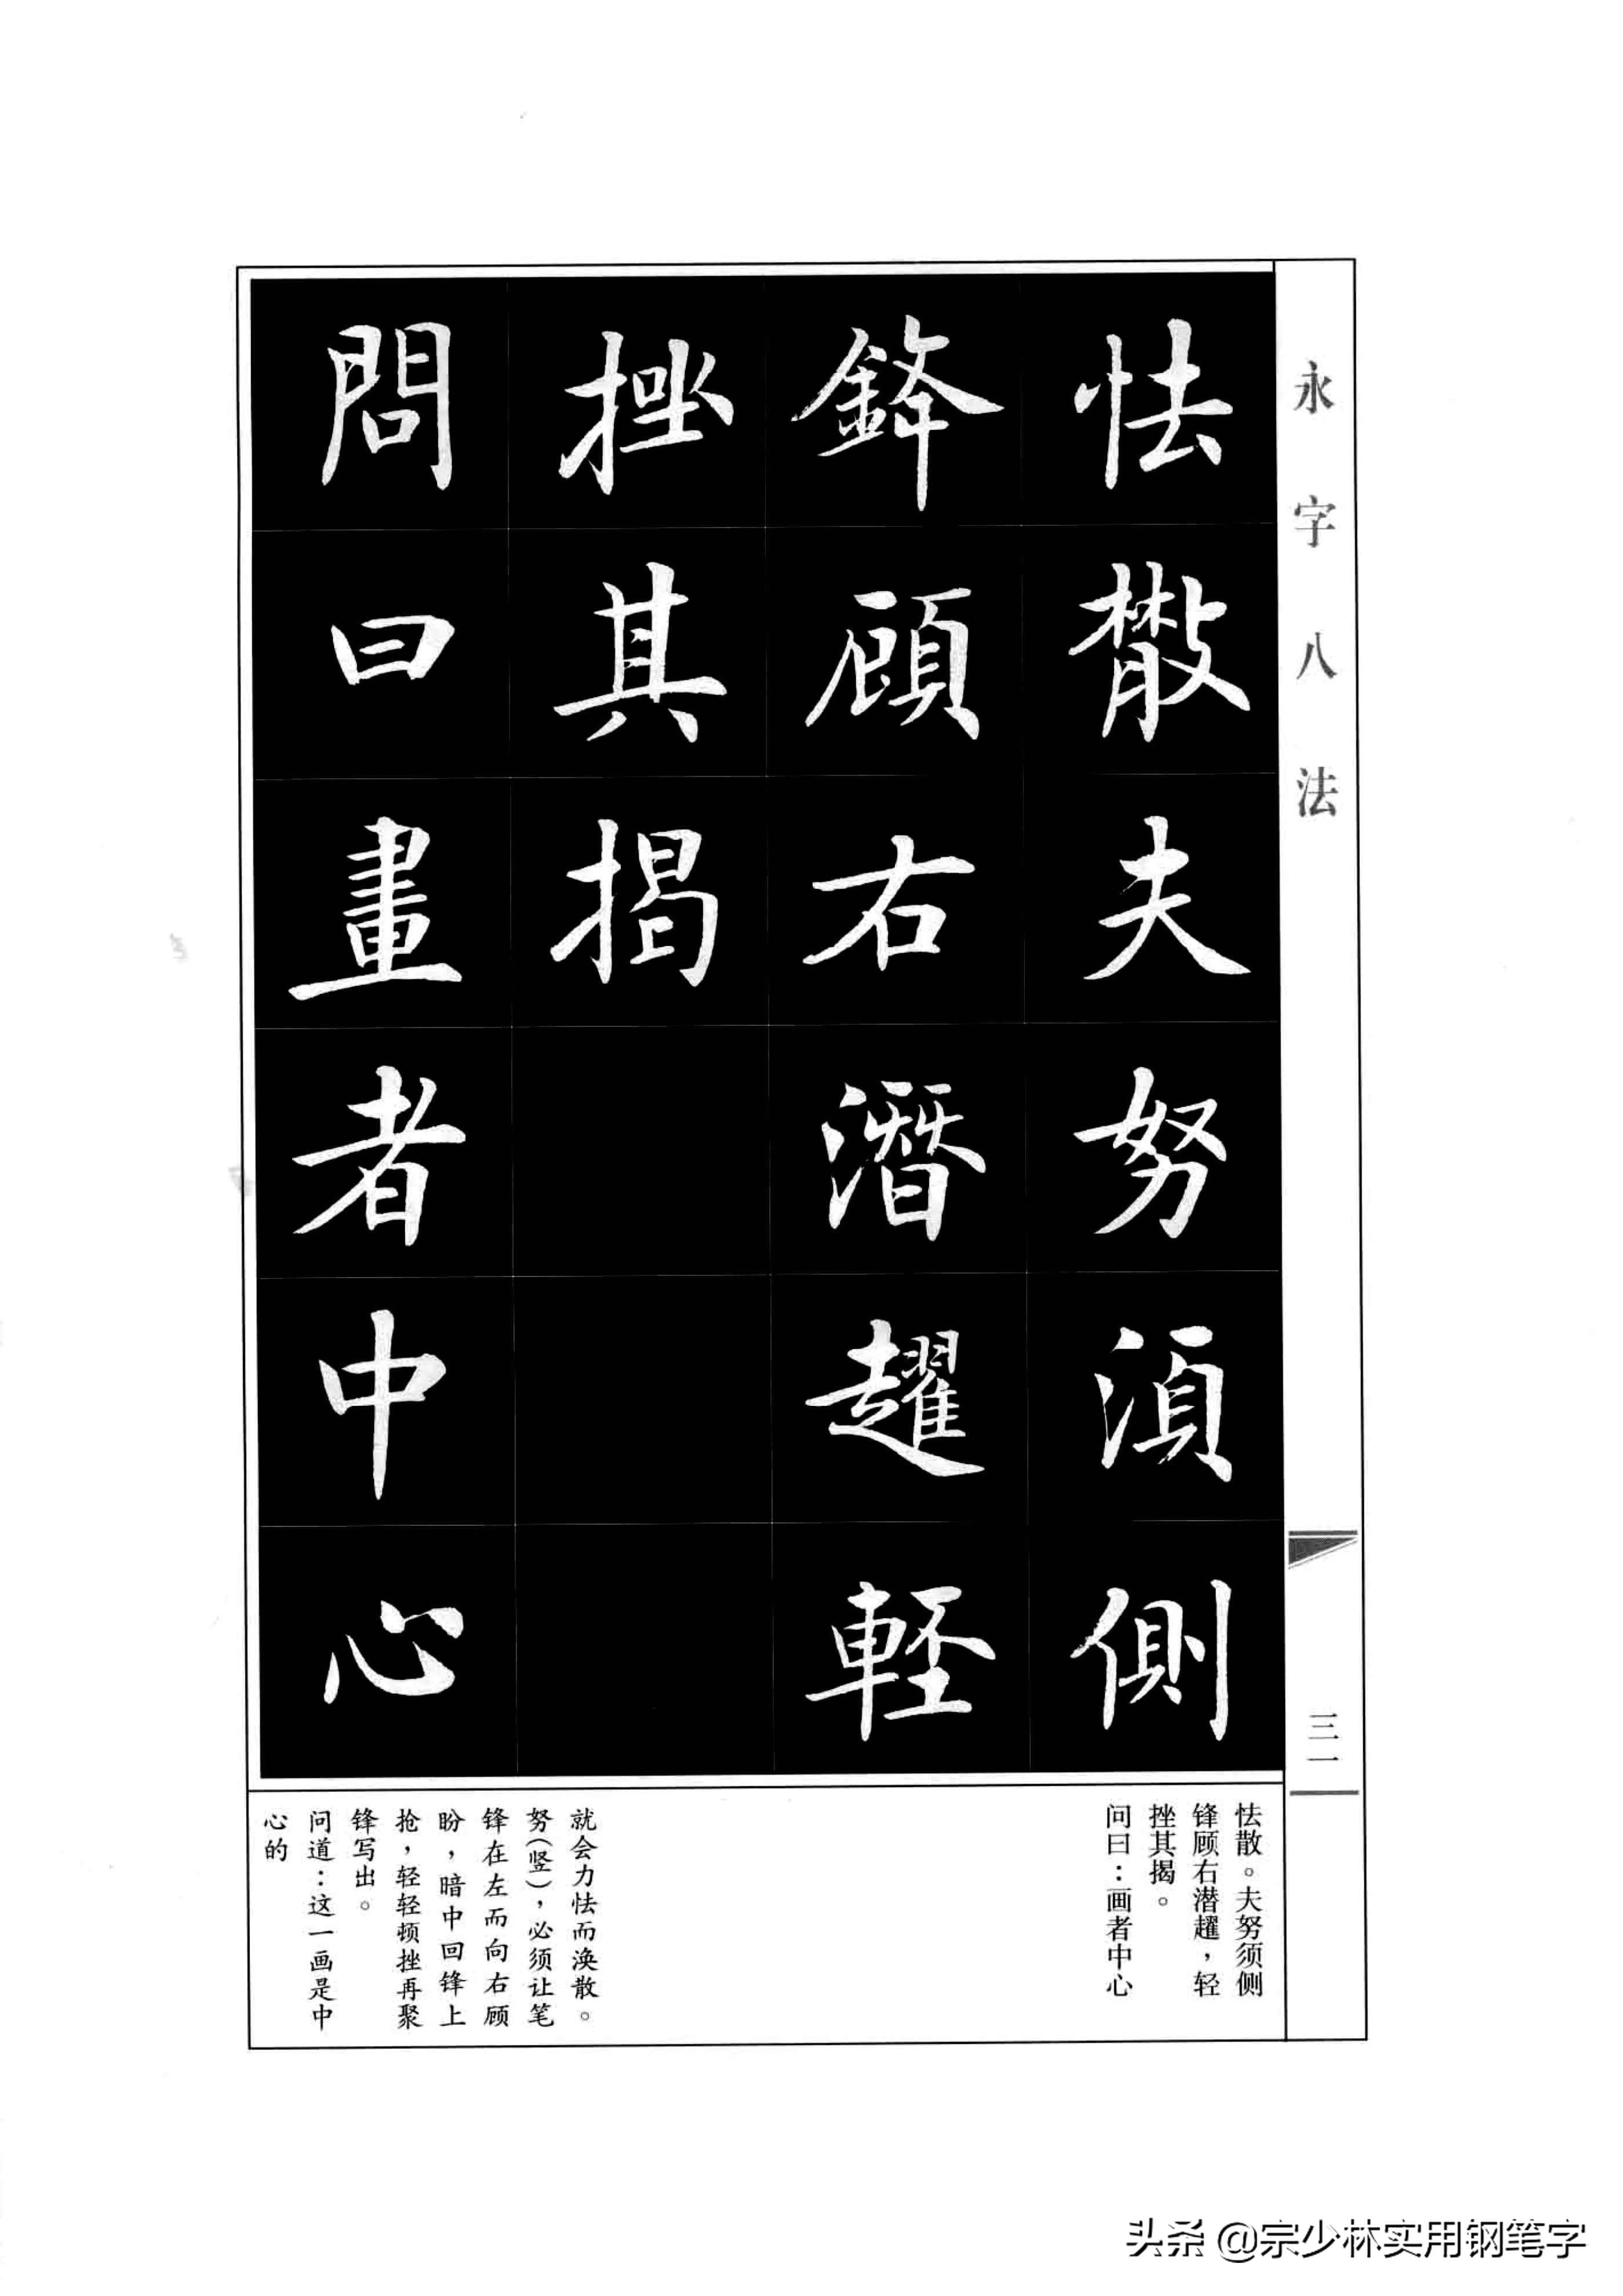 永字八法
三一
怯散夫努須側
鋒顧右潛趯輕
挫其揭
問曰畫者中心
怯散。夫努须侧
锋顾右潜趯，轻
挫其揭。
问曰：画者中心
就会力怯而涣散。
努（竖），必须让笔
锋在左而向右顾
盼，暗中回锋上
抢，轻轻顿挫再聚
锋写出。
问道：这一画是中
心的
头条 @宗少林实用钢笔字